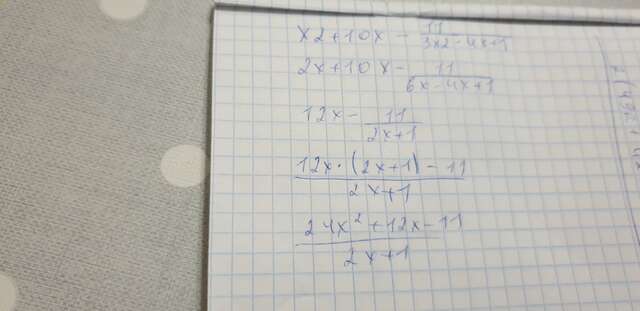 x2+10x - 11/3x2-4x+1
2x+10x- 11/6x-4x+1
12x- 11/2x+1
12x·(2x+1)-11/2x+1
24x²+12x-11/2x+1